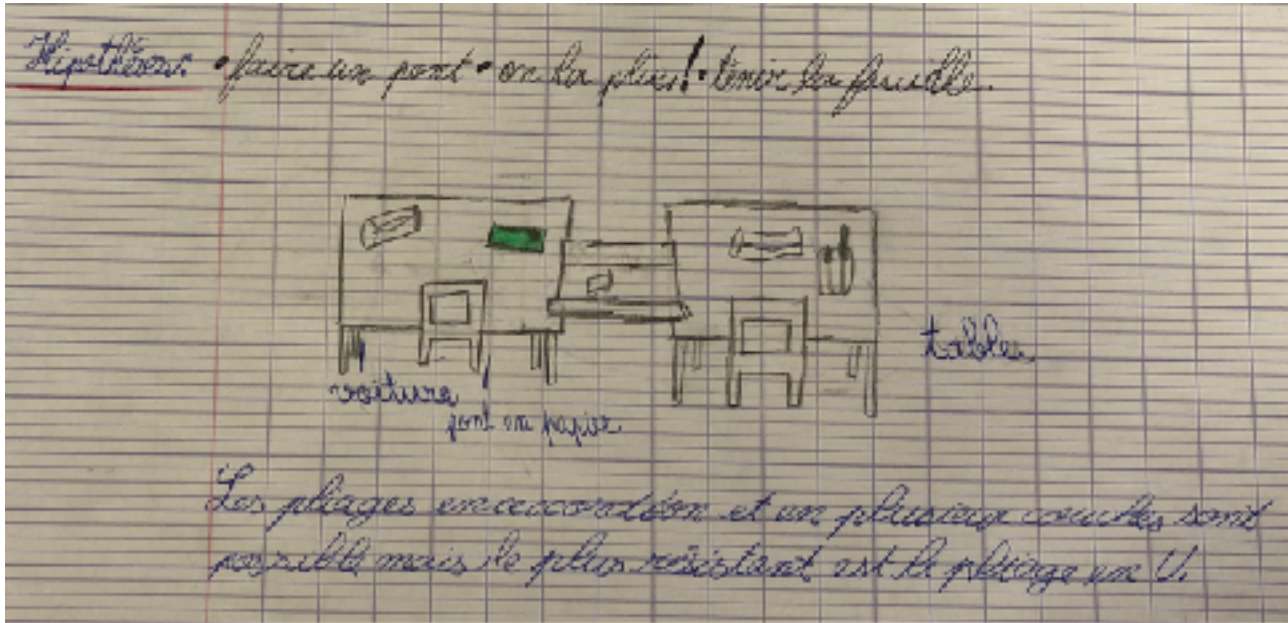 Hipothèse: • faire un pont • on la plie! • tenir la feuille.
tables
voiture
pont en papier
Les pliages en accordéon et en plusieur couches sont
possible mais le plus résistant est le pliage en U.